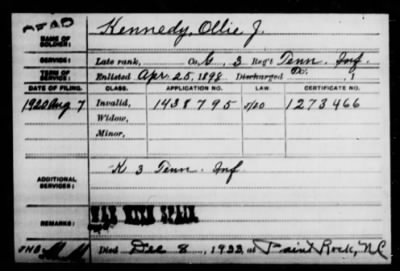 DEAD
NAME OF SOLDIER: Kennedy, Ollie J.
SERVICE: Late rank, Co. G, 3 Reg't Tenn. Inf.
TERM OF SERVICE: Enlisted Apr 25, 1898 Discharged
DATE OF FILING. CLASS. APPLICATION NO. LAW. CERTIFICATE NO.
1920 Aug 7 Invalid, 1438795 1273466
Widow,
Minor,
ADDITIONAL SERVICES: K 3 Tenn. Inf
REMARKS: WAR WITH SPAIN
Died Dec 8, 1933, at Paint Rock, NC